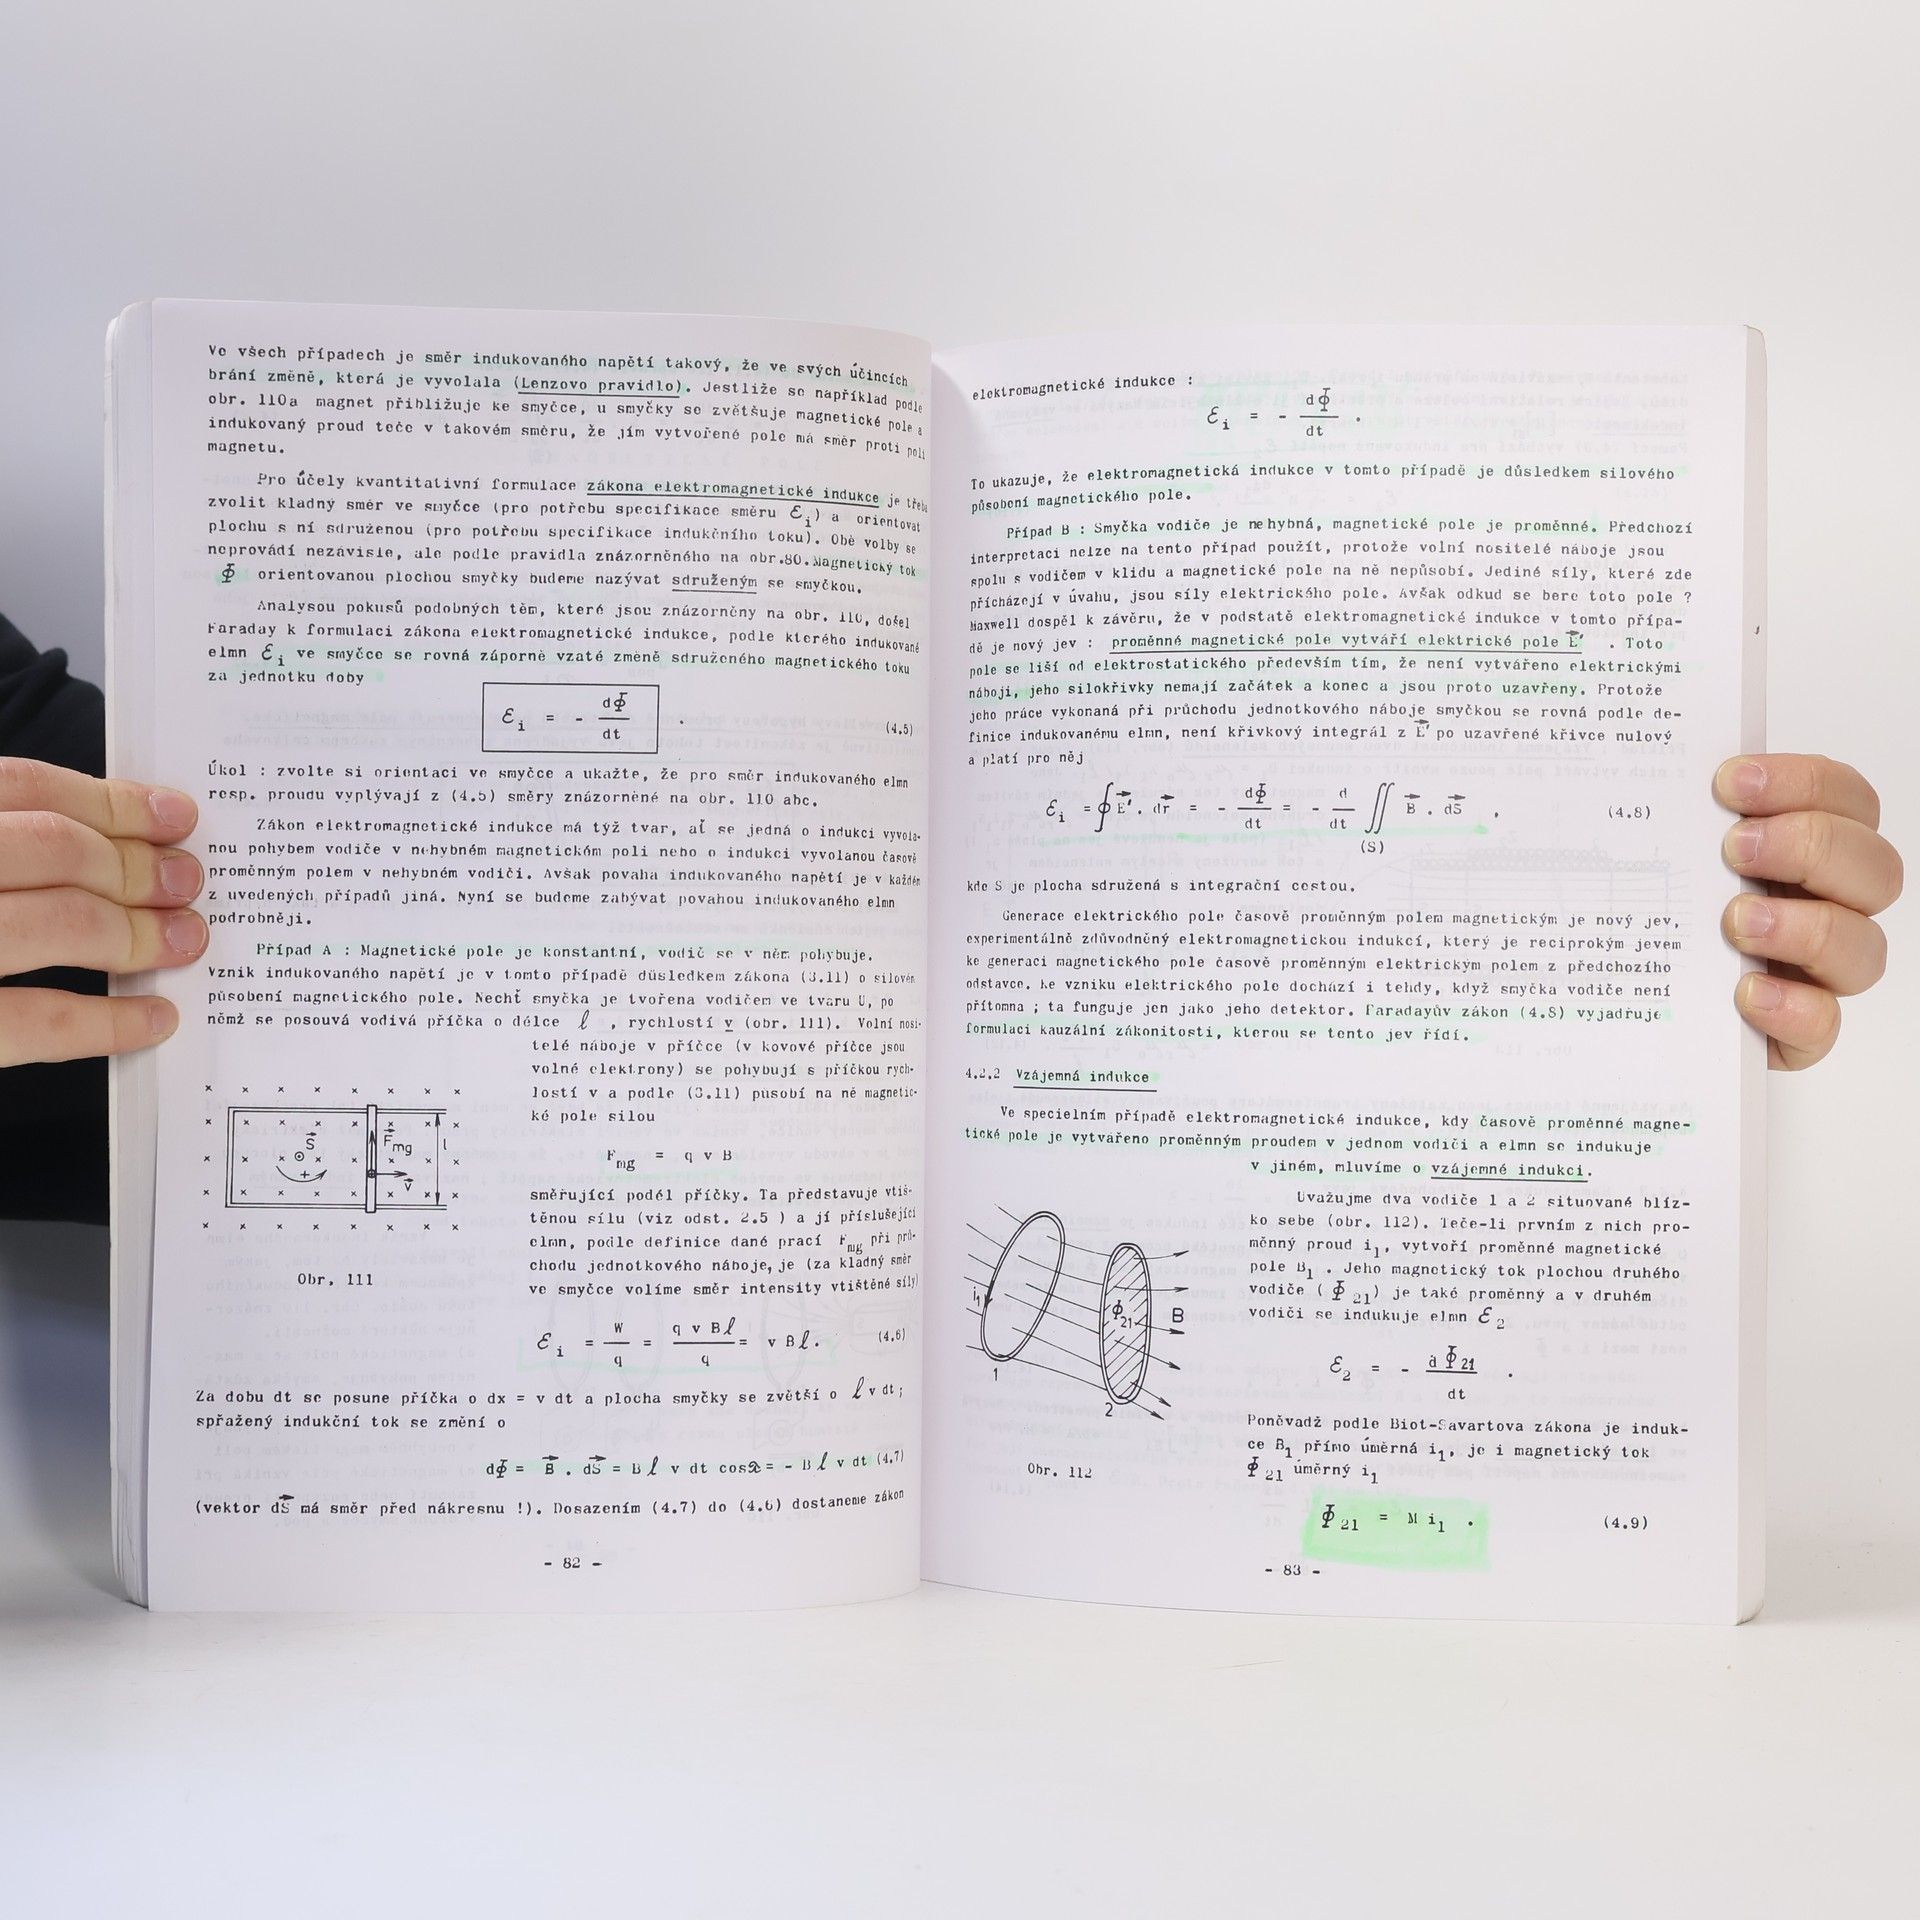 Ve všech případech je směr indukovaného napětí takový, že ve svých účincích
brání změně, která je vyvolala (Lenzovo pravidlo). Jestliže se například podle
obr. 110a magnet přibližuje ke smyčce, u smyčky se zvětšuje magnetické pole a
indukovaný proud teče v takovém směru, že jím vytvořené pole má směr proti poli
magnetu.
Pro účely kvantitativní formulace zákona elektromagnetické indukce je třeba
zvolit kladný směr ve smyčce (pro potřebu specifikace směru ℰi) a orientovat
plochu s ní sdruženou (pro potřebu specifikace indukčního toku). Obě volby se
neprovádí nezávisle, ale podle pravidla znázorněného na obr.80. Magnetický tok
Φ orientovanou plochou smyčky budeme nazývat sdruženým se smyčkou.
Analysou pokusů podobných těm, které jsou znázorněny na obr. 110, došel
Faraday k formulaci zákona elektromagnetické indukce, podle kterého indukované
elmn ℰi ve smyčce se rovná záporně vzaté změně sdruženého magnetického toku
za jednotku doby
ℰi = - dΦ/dt . (4.5)
Úkol : zvolte si orientaci ve smyčce a ukažte, že pro směr indukovaného elmn
resp. proudu vyplývají z (4.5) směry znázorněné na obr. 110 abc.
Zákon elektromagnetické indukce má týž tvar, ať se jedná o indukci vyvola-
nou pohybem vodiče v nehybném magnetickém poli nebo o indukci vyvolanou časově
proměnným polem v nehybném vodiči. Avšak povaha indukovaného napětí je v každém
z uvedených případů jiná. Nyní se budeme zabývat povahou indukovaného elmn
podrobněji.
Případ A : Magnetické pole je konstantní, vodič se v něm pohybuje.
Vznik indukovaného napětí je v tomto případě důsledkem zákona (3.11) o silovém
působení magnetického pole. Nechť smyčka je tvořena vodičem ve tvaru U, po
němž se posouvá vodivá příčka o délce ℓ , rychlostí v (obr. 111). Volní nosi-
telé náboje v příčce (v kovové příčce jsou
volné elektrony) se pohybují s příčkou rych-
lostí v a podle (3.11) působí na ně magnetic-
ké pole silou
Fmg = q v B
směřující podél příčky. Ta představuje vtiš-
těnou sílu (viz odst. 2.5 ) a jí příslušející
elmn, podle definice dané prací Fmg při prů-
chodu jednotkového náboje, je (za kladný směr
ve smyčce volíme směr intensity vtištěné síly)
S
Fmg
l
+
v
Obr. 111
ℰi = W/q = q v Bℓ/q = v Bℓ. (4.6)
Za dobu dt se posune příčka o dx = v dt a plocha smyčky se zvětší o ℓ v dt ;
spřažený indukční tok se změní o
dΦ = B . dS = B ℓ v dt cosπ = - B ℓ v dt (4.7)
(vektor dS má směr před nákresnu !). Dosazením (4.7) do (4.6) dostaneme zákon
- 82 -
elektromagnetické indukce :
ℰi = - dΦ/dt .
To ukazuje, že elektromagnetická indukce v tomto případě je důsledkem silového
působení magnetického pole.
Případ B : Smyčka vodiče je nehybná, magnetické pole je proměnné. Předchozí
interpretaci nelze na tento případ použít, protože volní nositelé náboje jsou
spolu s vodičem v klidu a magnetické pole na ně nepůsobí. Jediné síly, které zde
přicházejí v úvahu, jsou síly elektrického pole. Avšak odkud se bere toto pole ?
Maxwell dospěl k závěru, že v podstatě elektromagnetické indukce v tomto přípa-
dě je nový jev : proměnné magnetické pole vytváří elektrické pole E' . Toto
pole se liší od elektrostatického především tím, že není vytvářeno elektrickými
náboji, jeho silokřivky nemají začátek a konec a jsou proto uzavřeny. Protože
jeho práce vykonaná při průchodu jednotkového náboje smyčkou se rovná podle de-
finice indukovanému elmn, není křivkový integrál z E' po uzavřené křivce nulový
a platí pro něj
ℰi = ∮ E'. dr = - dΦ/dt = - d/dt ∬(S) B . dS . (4.8)
kde S je plocha sdružená s integrační cestou.
Generace elektrického pole časově proměnným polem magnetickým je nový jev,
experimentálně zdůvodněný elektromagnetickou indukcí, který je reciprokým jevem
ke generaci magnetického pole časově proměnným elektrickým polem z předchozího
odstavce. Ke vzniku elektrického pole dochází i tehdy, když smyčka vodiče není
přítomna ; ta funguje jen jako jeho detektor. Faradayův zákon (4.8) vyjadřuje
formulaci kauzální zákonitosti, kterou se tento jev řídí.
4.2.2 Vzájemná indukce
Ve specielním případě elektromagnetické indukce, kdy časově proměnné magne-
tické pole je vytvářeno proměnným proudem v jednom vodiči a elmn se indukuje
v jiném, mluvíme o vzájemné indukci.
Uvažujme dva vodiče 1 a 2 situované blíz-
ko sebe (obr. 112). Teče-li prvním z nich pro-
měnný proud i1, vytvoří proměnné magnetické
pole B1 . Jeho magnetický tok plochou druhého
vodiče ( Φ21) je také proměnný a v druhém
vodiči se indukuje elmn ℰ2
i1
Φ21
B
1
2
Obr. 112
ℰ2 = - dΦ21/dt .
Poněvadž podle Biot-Savartova zákona je induk-
ce B1 přímo úměrná i1, je i magnetický tok
Φ21 úměrný i1
Φ21 = M i1 . (4.9)
- 83 -